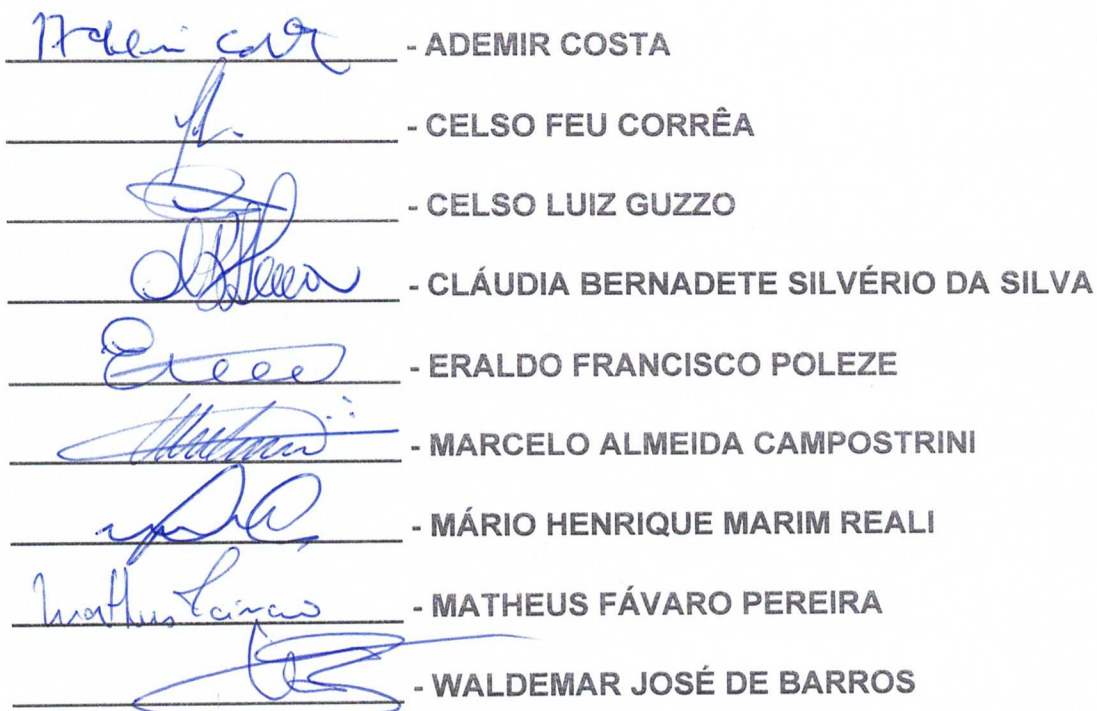 Ademir Costa - ADEMIR COSTA
- CELSO FEU CORRÊA
- CELSO LUIZ GUZZO
- CLÁUDIA BERNADETE SILVÉRIO DA SILVA
- ERALDO FRANCISCO POLEZE
- MARCELO ALMEIDA CAMPOSTRINI
- MÁRIO HENRIQUE MARIM REALI
Matheus Fávaro - MATHEUS FÁVARO PEREIRA
- WALDEMAR JOSÉ DE BARROS